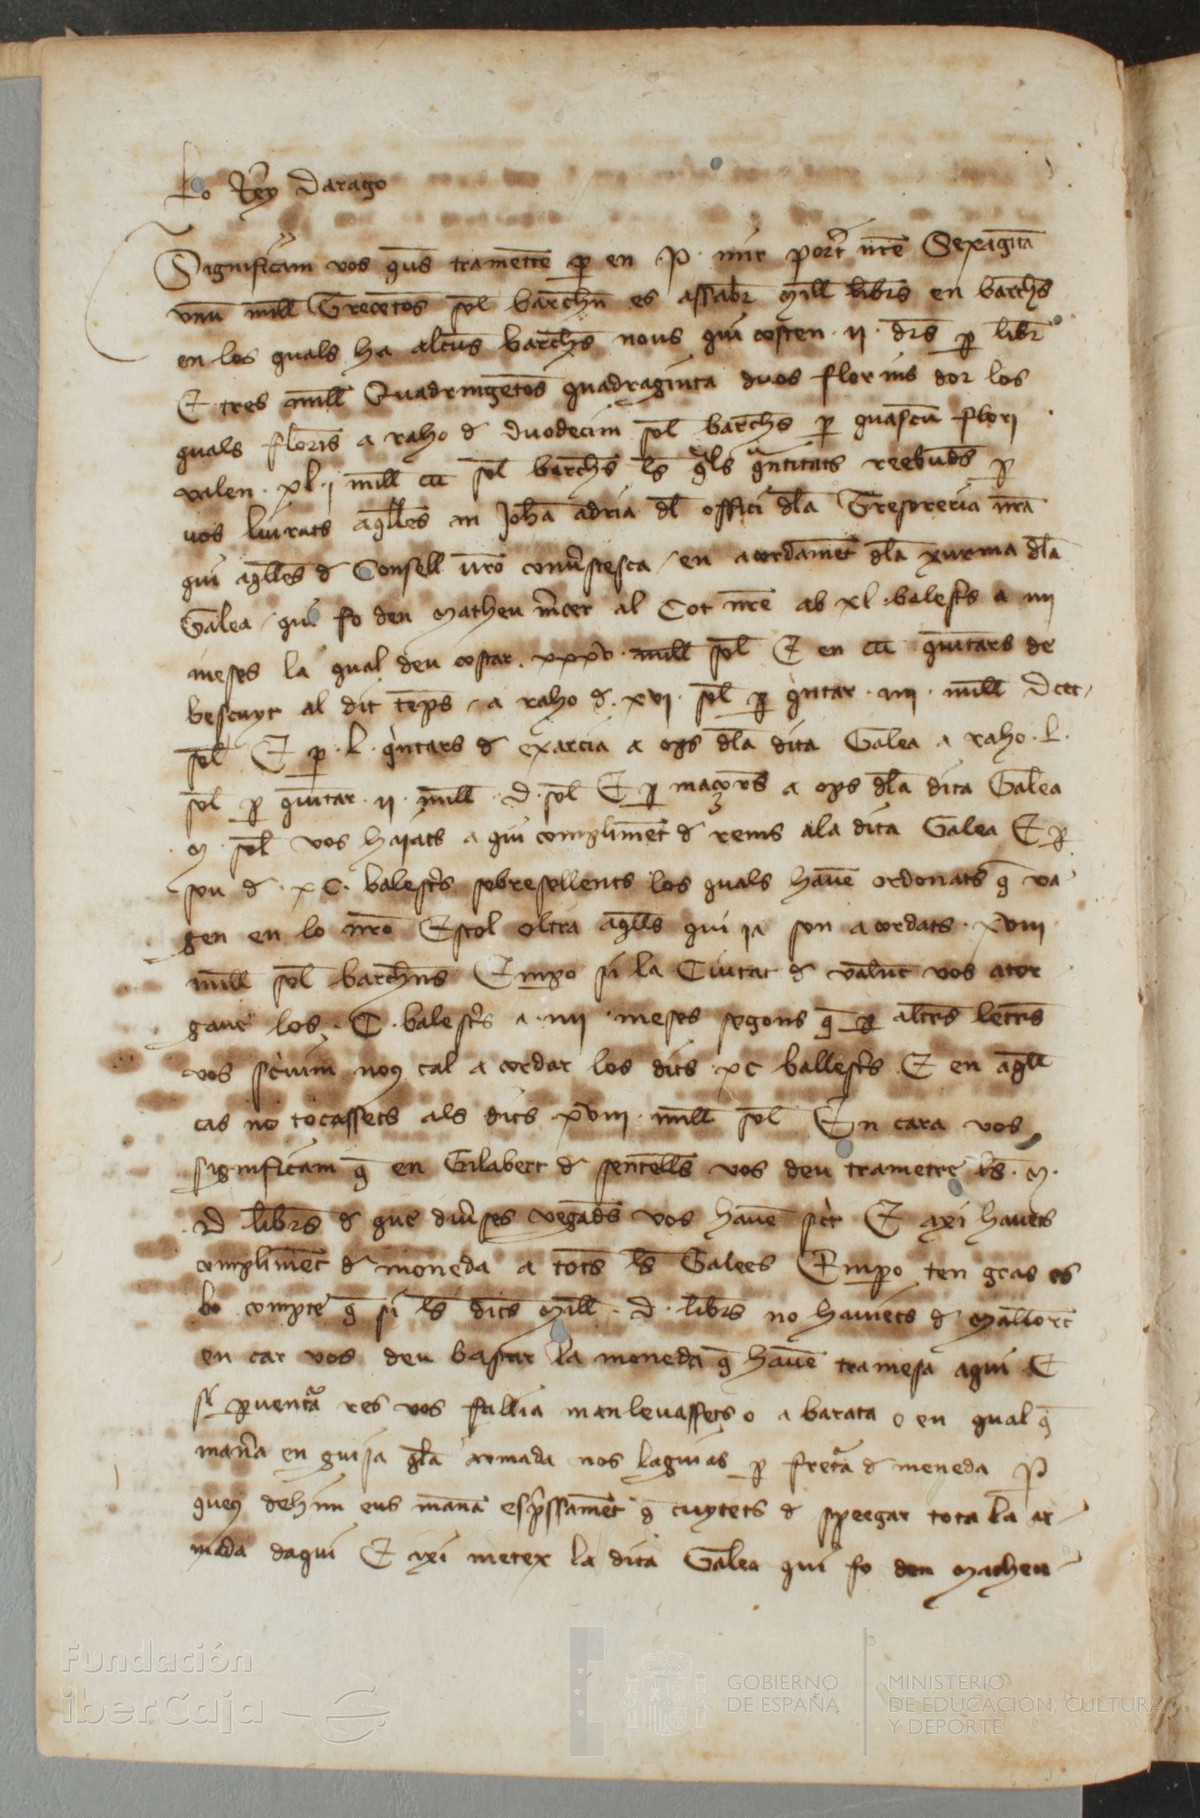 Lo Rey Darago
Significam vos q̄us trametem p̄ en .P. mir port̄ nr̄e Sexaginta
unū mill Trecētos sol barchn̄ es assab̄r mill libr̄s en barch̄s
en los quals ha alcūs barch̄s nous qui costen .ii. dr̄s p̄ libr̄
E tres mill Quadringētos quadraginta duos florins dor los
quals florīs a raho d duodecim sol barch̄s p̄ quascū flori
valen .xl.i mill cū sol barch̄s ls q̄ls q̄ntitats reebudes p̄
vos liurats aq̄lles an Joh̄a adria dl offici dla Tresoreria nr̄a
qui aq̄lles d Consell vr̄o conv̄tesca en acordamēt dla xurma dla
Galea qui fo den matheu m̄cer al Cot nr̄e ab xl. balest̄s a iiii
meses la qual deu costar .xxxv. mill sol E en cū quītars de
bescuyt al dit tēps a raho d .xvi. sol p̄ q̄ntar .iiii. mill Dccc
sol E p̄ .L. q̄ntars d exarcia a ops dla dita Galea a raho .L.
sol p̄ quītar .ii. mill .D. sol E p̄ a ops dla dita Galea
.M. sol vos haiats aqui complimēt d rems ala dita Galea E p̄
sou d .xC. balest̄s sobresellents los quals havē ordonats q̄ va
gen en lo nr̄o Estol oltra aq̄lls qui ia son acordats .xviii.
mill sol barchn̄s Emp̄o si la Ciutat d valn̄c vos ator
gave los .C. balest̄s a .iiii. meses segons q̄ p̄ altr̄s letr̄s
vos sc̄vim noy cal acordar los dits .xC ballest̄s E en aq̄ll
cas no tocassets als dits .xviii. mill sol Encara vos
significam q̄ en Gilabert d sentelles vos deu trametre ls .M.
.D libr̄s d que div̄ses vegades vos havē sc̄t E axi havets
complimēt d moneda a totes ls Galees Emp̄o ten gras es
lo compte q̄ si ls dits Mill .D. libr̄s no haviets d Mallorc̄
encar vos deu bastar la moneda q̄ havē tramesa aqui E
si p̄ventā res vos fallia manlevassets o abarata o en qual q̄
man̄a en guisa q̄la armada nos laguias p̄ fretā d moneda P̄
queus dehim eus manā esp̄ssamēt q̄ cuytets d speegar tota la ar
mada daqui E axi metex la dita Galea qui fo den matheu
Fundación
iberCaja
GOBIERNO
DE ESPAÑA
MINISTERIO
DE EDUCACIÓN, CULTURA
Y DEPORTE